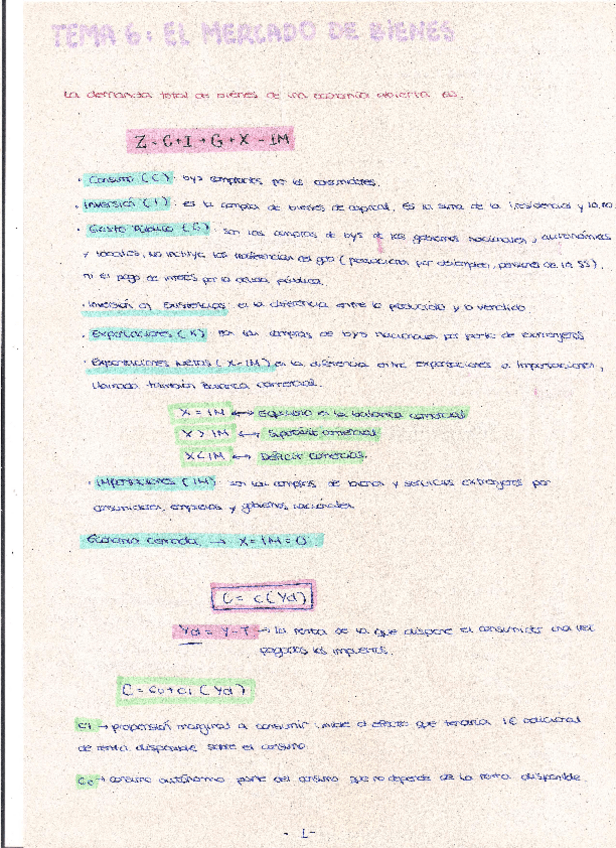 TEMA 6: EL MERCADO DE BIENES
La demanda total de bienes de una economía abierta es,
Z = C+I+G+X-IM
· Consumo (C): bys comprados por los consumidores.
· Inversión (I): es la compra de bienes de capital. Es la suma de la I.residencial y I.o.no
· Gasto Público (G): son las compras de bys de los gobiernos nacionales, autonómicas
y locales, no incluye las trasferencias del gto (prestaciones por desempleo, pensiones de la SS),
ni el pago de interés por la deuda pública.
· Inversión en Existencias: es la diferencia entre lo producido y lo vendido.
· Exportaciones (X): son las compras de bys nacionales por parte de extranjeros
· Exportaciones Netas (X-IM) es la diferencia entre exportaciones e Importaciones,
llamada también Balanza comercial.
X = IM ↔ Equilibrio en la balanza comercial
X > IM ↔ Superávit comercial
X < IM ↔ Déficit comercial.
· Importaciones (IM): son las compras de bienes y servicios extranjeros por
consumidores, empresas y gobiernos nacionales.
Economía cerrada → X=IM=0.
C = C(Yd)
Yd = Y-T → la renta de la que dispone el consumidor una vez
pagados los impuestos.
C = C0+C1(Yd)
C1 → propensión marginal a consumir, mide el efecto que tendría 1€ adicional
de renta disponible sobre el consumo.
C0 → consumo autónomo parte del consumo que no depende de la renta disponible.
- 1 -